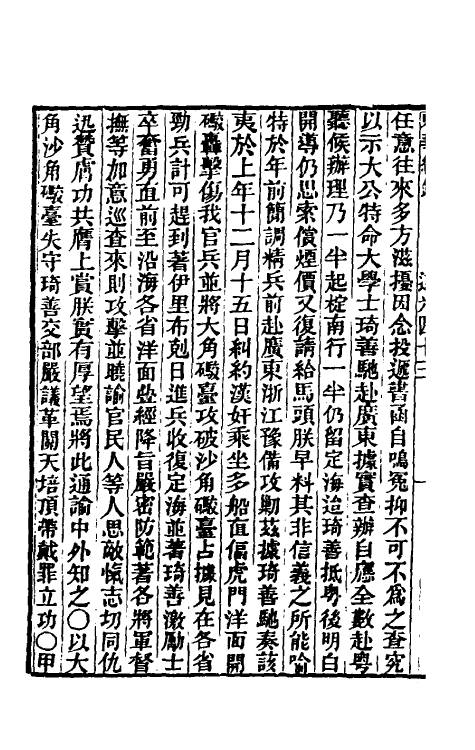 任意往來多方滋擾因念投遞書函自鳴冤抑不可不為之查究
以示大公特命大學士琦善馳赴廣東據實查辦自應全數赴粵
聽候辦理乃一半起椗南行一半仍留定海迨琦善抵粵後明白
開導仍思索償煙價又復請給馬頭朕早料其非信義之所能喻
特於年前簡調精兵前赴廣東浙江豫備攻勦茲據琦善馳奏該
夷於上年十二月十五日糾約漢奸乘坐多船直偪虎門洋面開
礮轟擊傷我官兵並將大角礮臺攻破沙角礮臺占據見在各省
勁兵計可趕到著伊里布剋日進兵收復定海並著琦善激勵士
卒奮勇直前至沿海各省洋面疊經降旨嚴密防範著各將軍督
撫等加意巡查來則攻擊並曉諭官民人等人思敵愾志切同仇
迅贊膚功共膺上賞朕實有厚望焉將此通諭中外知之〇以大
角沙角礮臺失守琦善交部嚴議革關天培頂帶戴罪立功〇甲